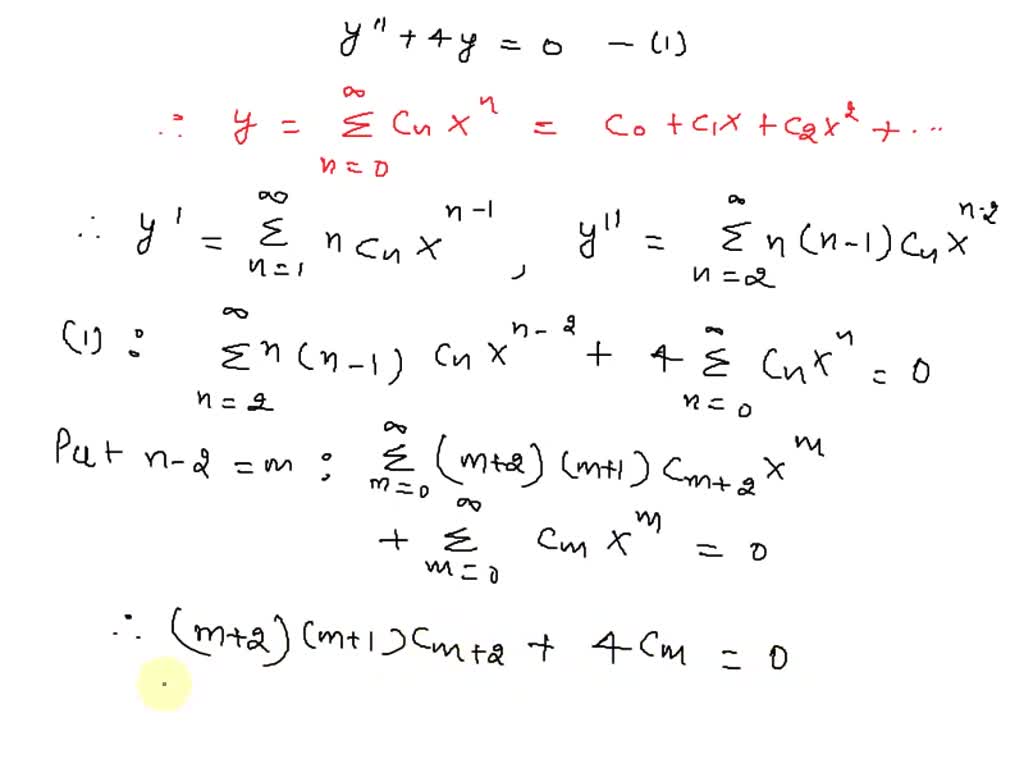 y'' + 4y = 0 — (1)
∴ y = ∞ Σ n=0 Cn x^n = C0 + C1x + C2x^2 + ...
∴ y' = ∞ Σ n=1 n Cn x^n-1 , y'' = ∞ Σ n=2 n(n-1) Cn x^n-2
(1) : ∞ Σ n=2 n(n-1) Cn x^n-2 + 4 ∞ Σ n=0 Cn x^n = 0
Put n-2 = m : ∞ Σ m=0 (m+2)(m+1) Cm+2 x^m
+ ∞ Σ m=0 Cm x^m = 0
∴ (m+2)(m+1) Cm+2 + 4 Cm = 0